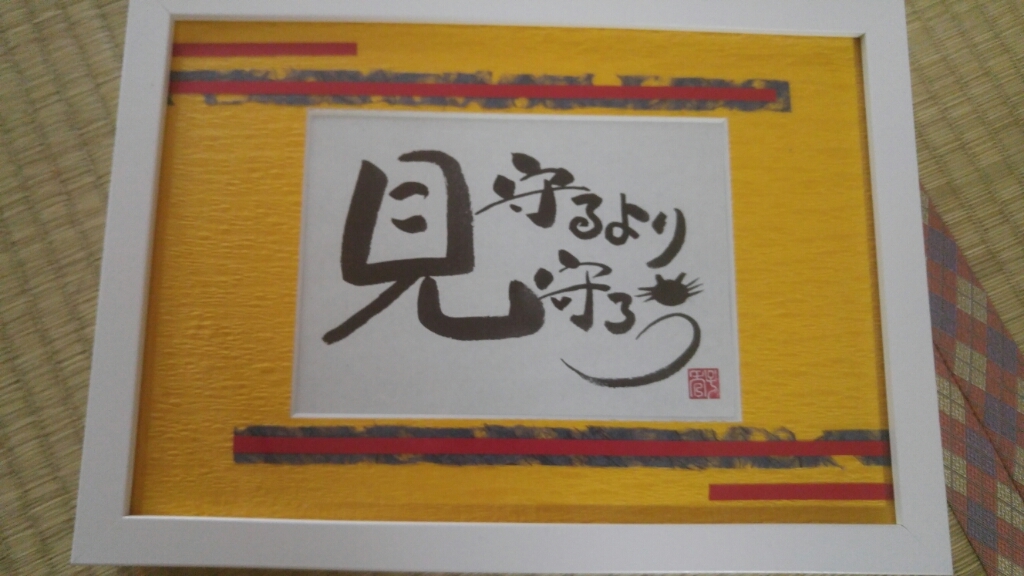 見守るより
守ろう